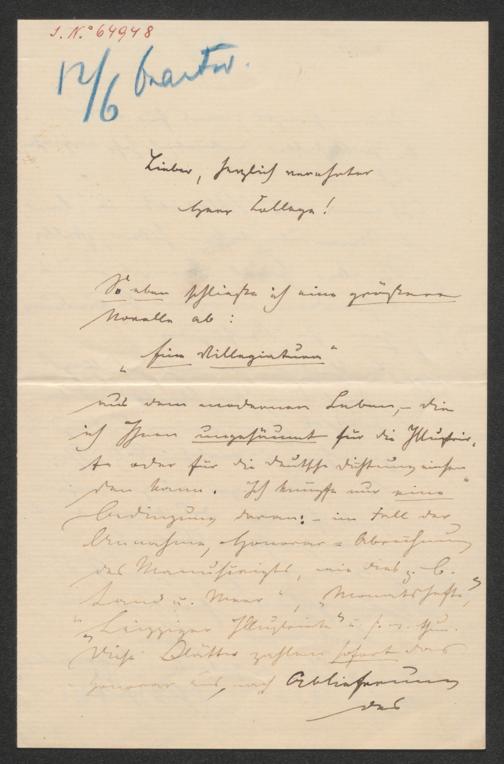 J. N.º 64948
12/6 beantw.
Lieber, herzlich verehrter
Herr College!
So eben schließe ich eine größere
Novelle ab:
„Eine Villegiatura"
aus dem modernen Leben, – die
ich Ihnen ungesäumt für die Illustrir-
te oder für die deutsche Dichtung einsen
den kann. Ich knüpfe nur eine
Bedingung daran: – im Fall der
Annahme, Honorar = Abrechnung
des Manuscripts, wie dies z. B.
„Land u. Meer", „Monatshefte",
„Leipziger Illustrirte" u. s. w. thun.
Diese Blätter zahlen sofort das
Honorar aus, nach Ablieferung
des